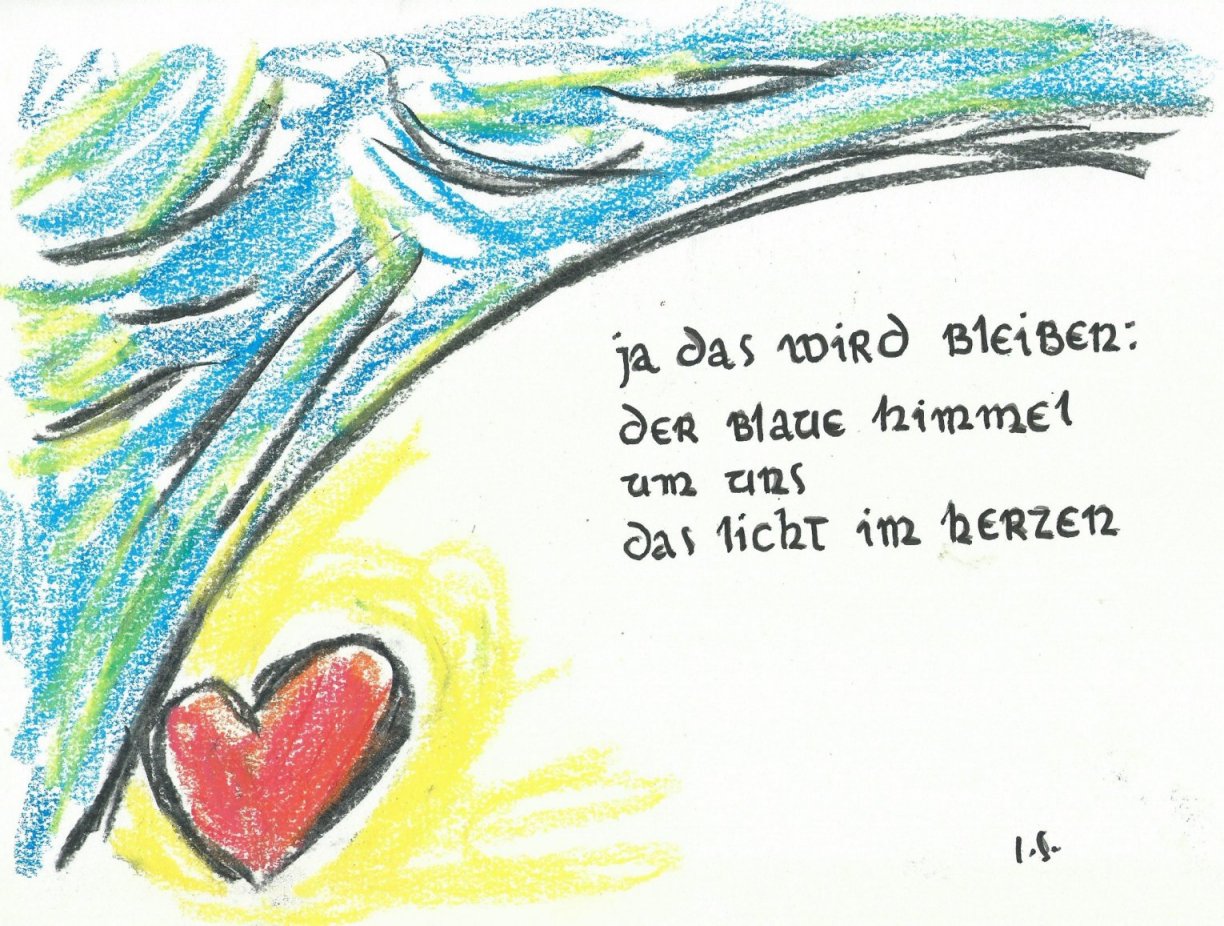 ja das wird bleiben:
der blaue himmel
um uns
das licht im herzen
I.S.